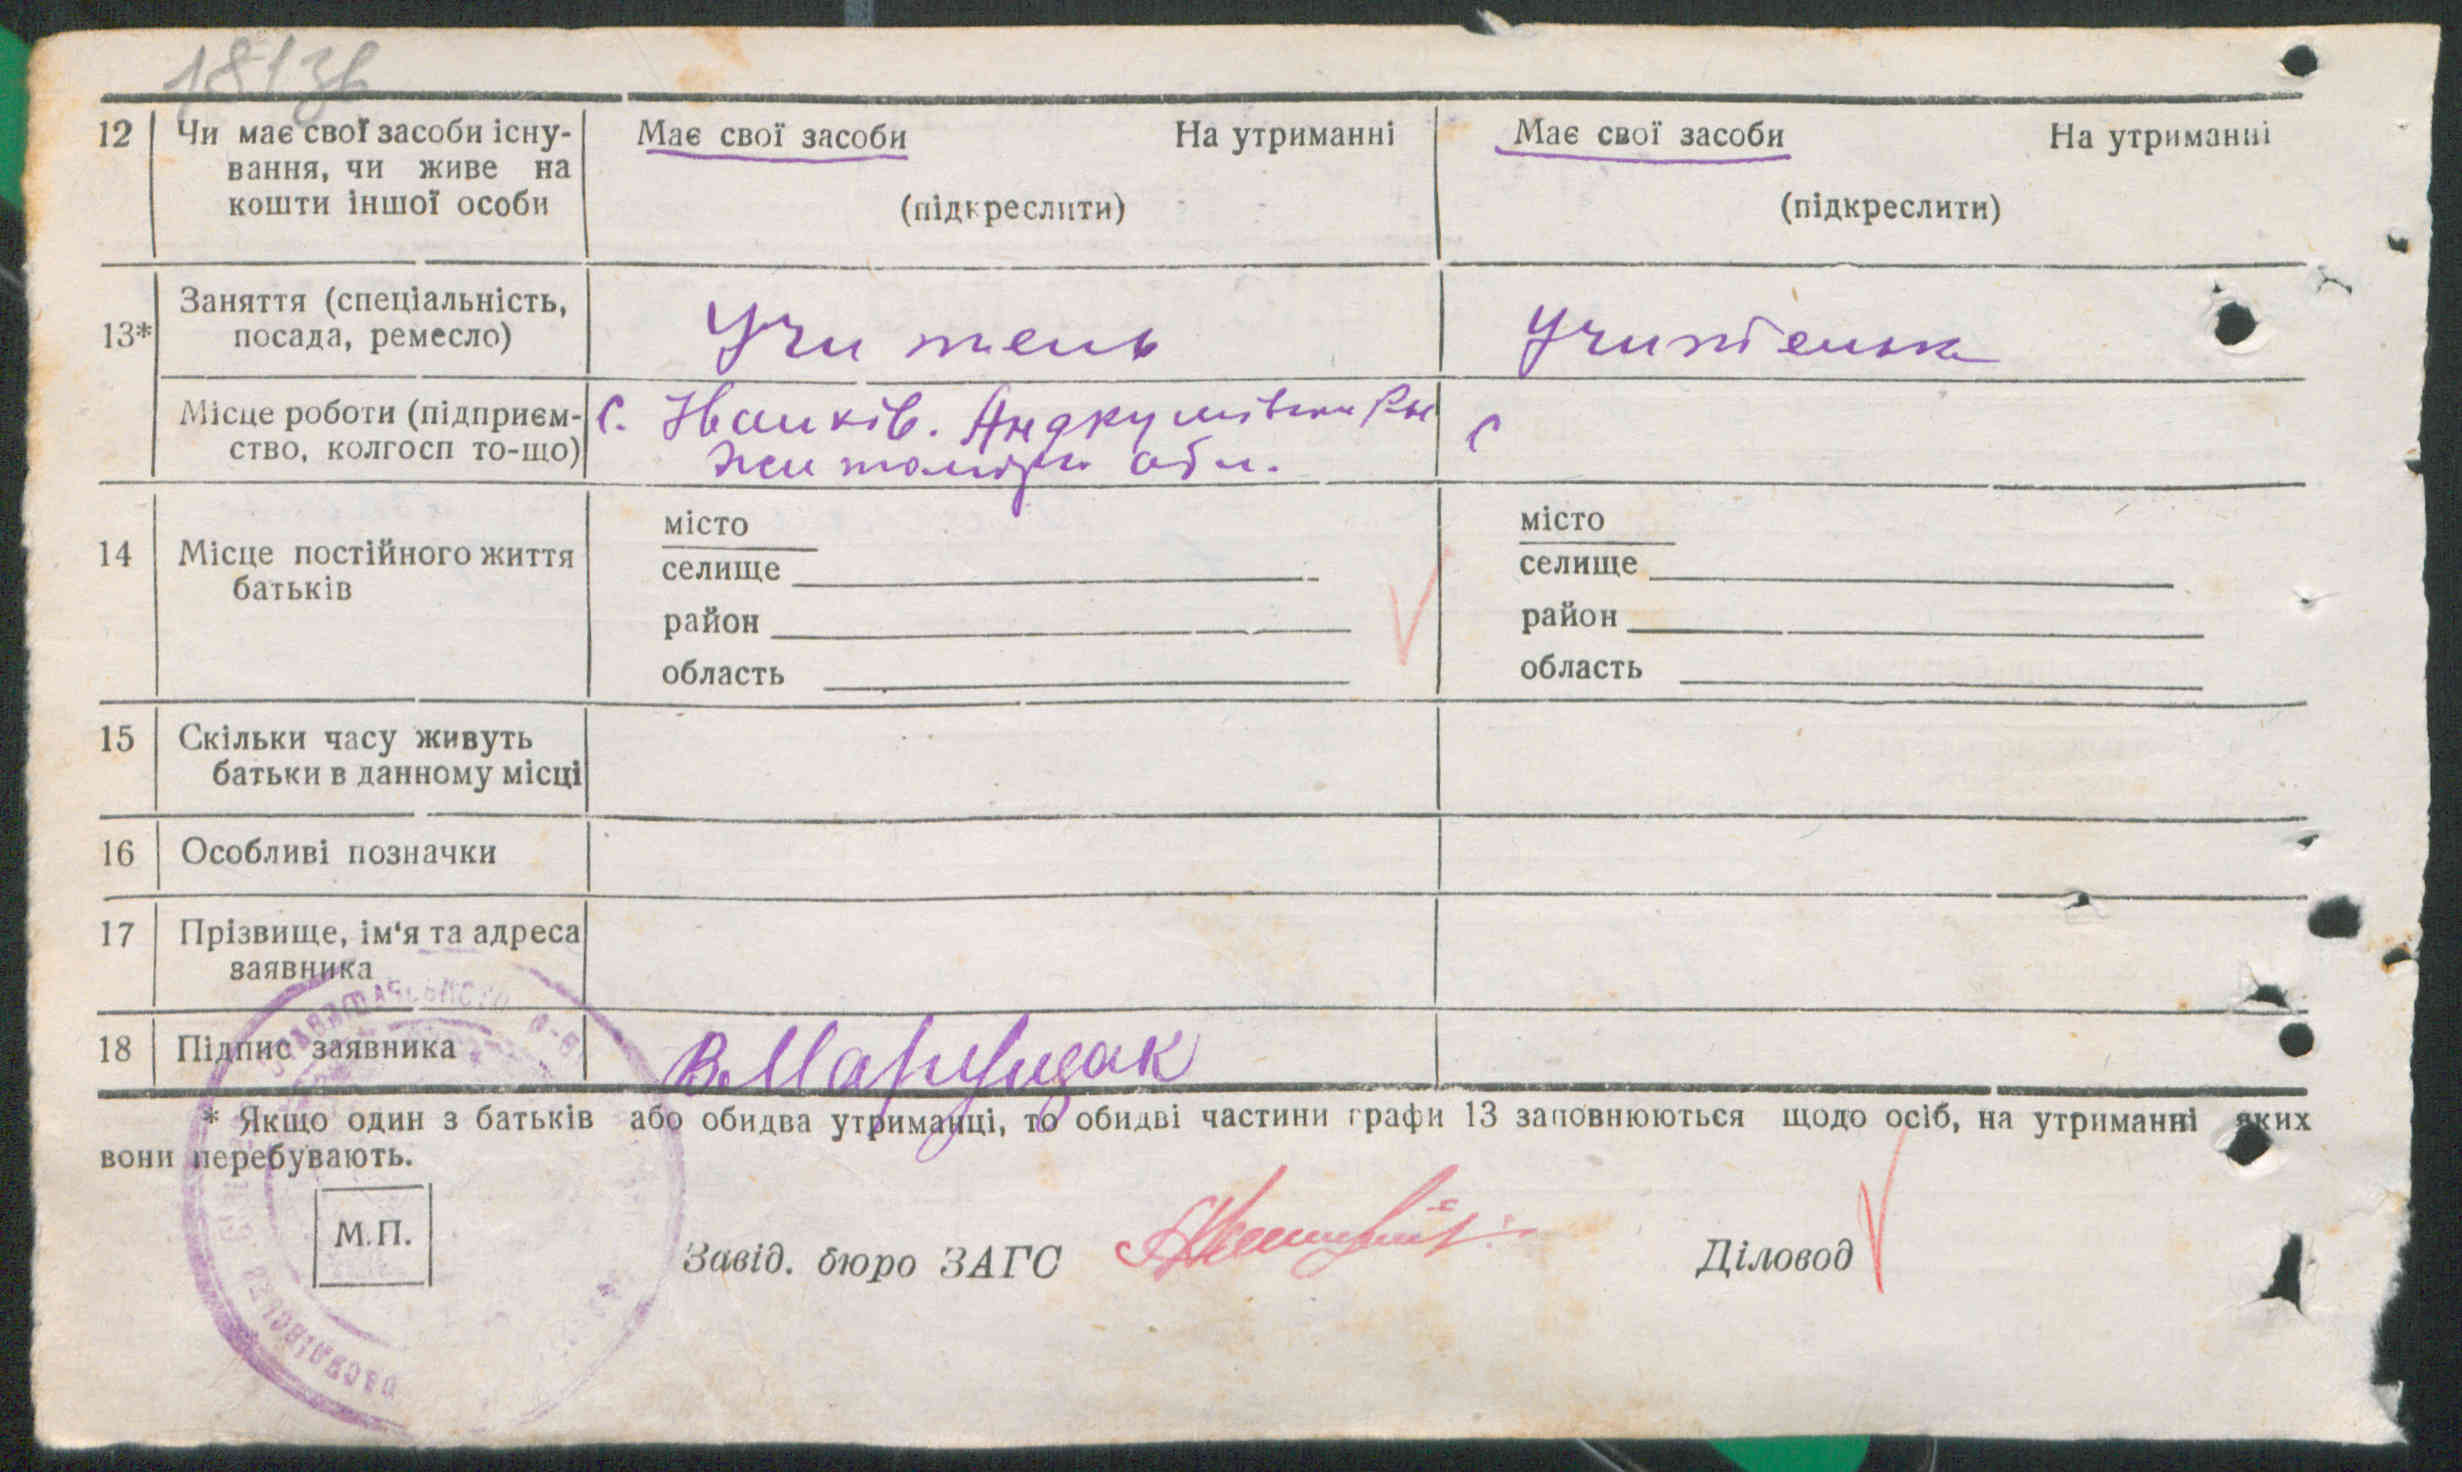 12 Чи має свої засоби існу-
вання, чи живе на
кошти іншої особи
Має свої засоби На утриманні
(підкреслити)
Має свої засоби На утриманні
(підкреслити)
13* Заняття (спеціальність,
посада, ремесло)
Учитель
Учителька
Місце роботи (підприєм-
ство, колгосп то-що)
с. Іванків. Андрушівськ
обл.
с
14 Місце постійного життя
батьків
місто
селище
район
область
місто
селище
район
область
15 Скільки часу живуть
батьки в данному місці
16 Особливі позначки
17 Прізвище, ім'я та адреса
заявника
18 Підпис заявника
* Якщо один з батьків або обидва утриманці, то обидві частини графи 13 заповнюються щодо осіб, на утриманні яких
вони перебувають.
М.П.
Завід. бюро ЗАГС
Діловод